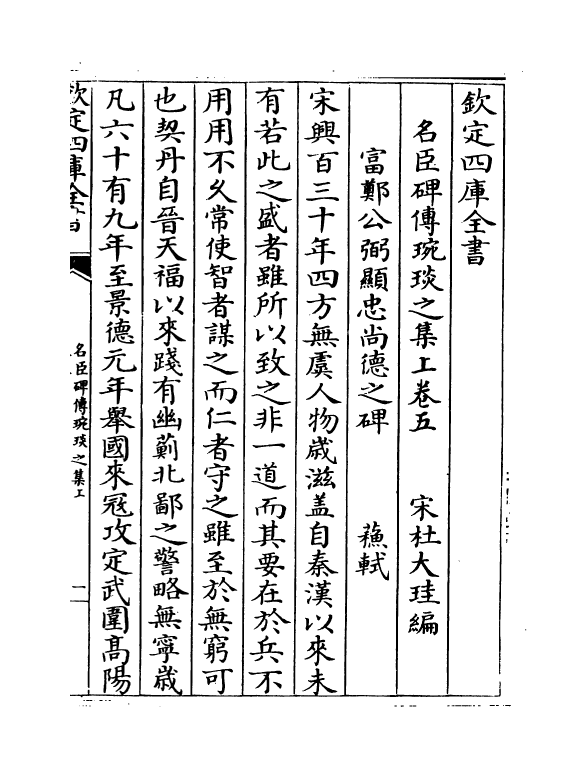 欽定四庫全書
名臣碑傳琬琰之集上卷五　宋杜大珪編
富鄭公弼顯忠尚德之碑　蘓軾
宋興百三十年四方無虞人物歳滋盖自秦漢以來未
有若此之盛者雖所以致之非一道而其要在於兵不
用用不久常使智者謀之而仁者守之雖至於無窮可
也契丹自晉天福以來踐有幽薊北鄙之警略無寧歳
凡六十有九年至景德元年舉國來冦攻定武圍髙陽
欽定四庫全書
名臣碑傳琬琰之集上
一